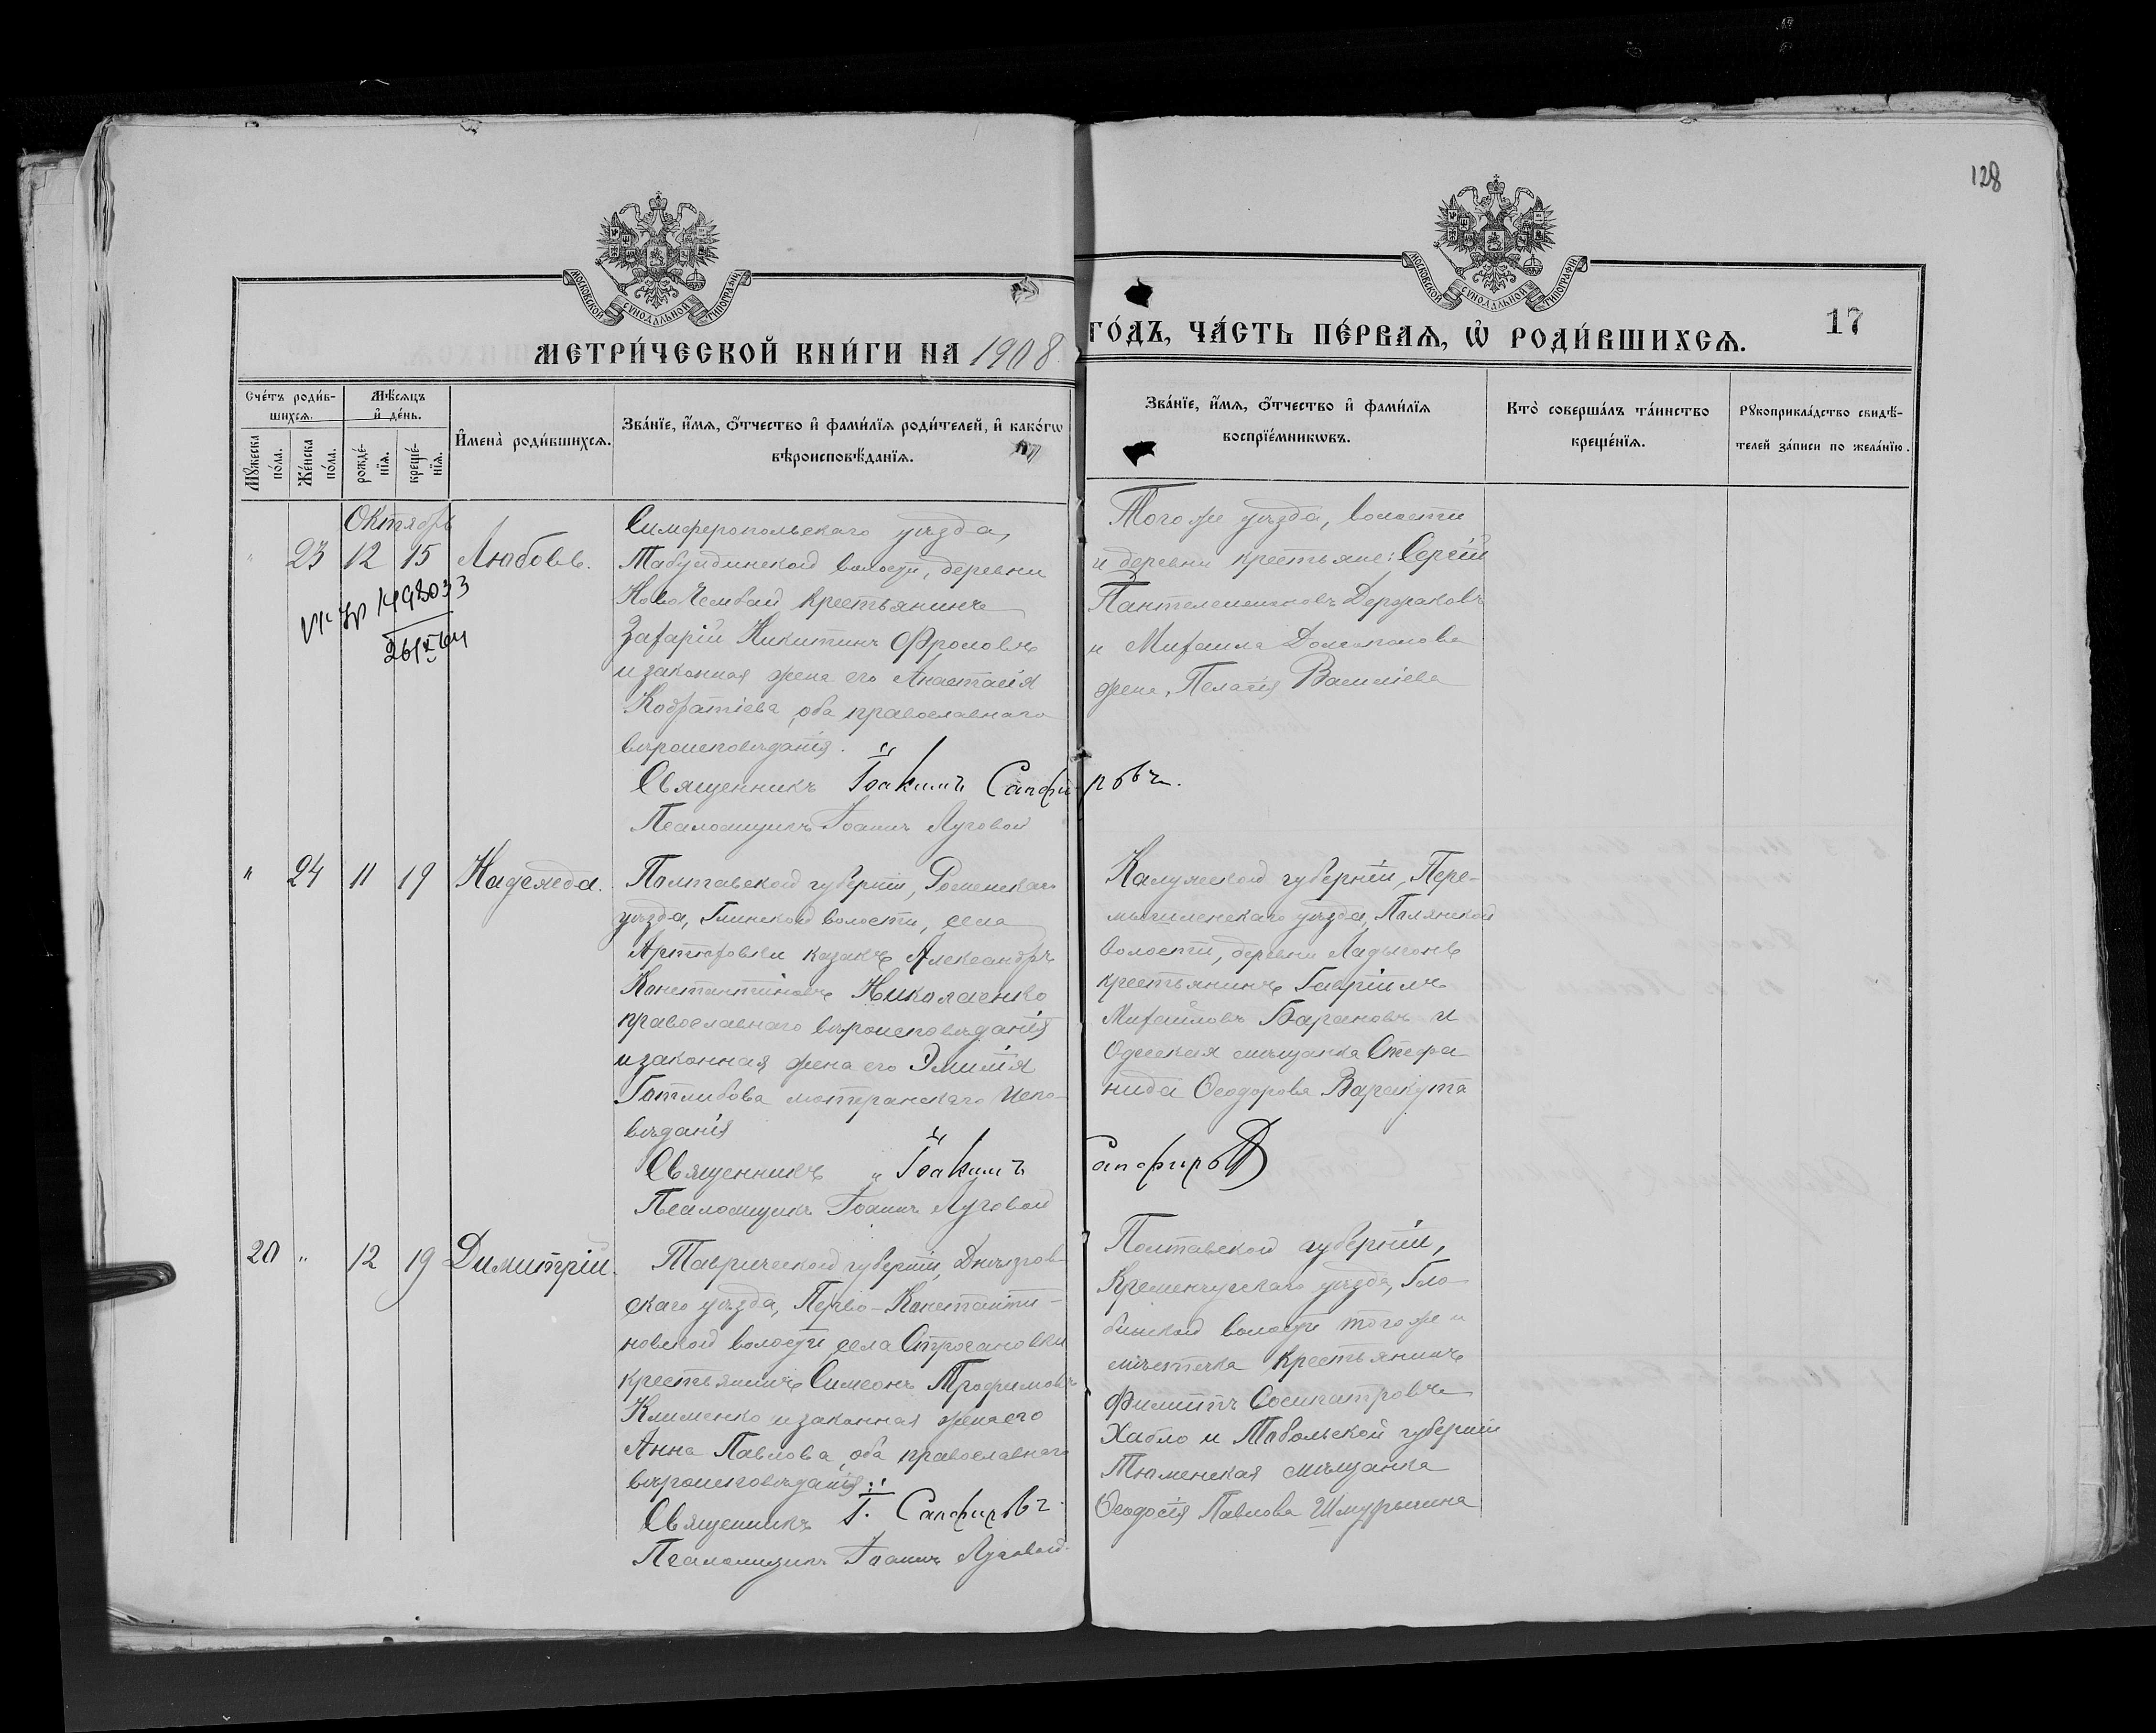 128
МОСКОВСКОЙ СУНОДАЛЬНОЙ ТИПОГРАФІИ
МОСКОВСКОЙ СУНОДАЛЬНОЙ ТИПОГРАФІИ
МЕТРИ́ЧЕСКОЙ КНИ́ГИ НА 1908
ГО́ДЪ, ЧА́СТЬ ПЕ́РВАѦ, Ѡ҆ РОДИ́ВШИХСѦ.
17
Сче́тъ роди́в-
шихсѧ.
Мѣ́сѧцъ
и҆ де́нь.
Мꙋ́жеска по́ла.
Же́нска по́ла.
рожде́-нїѧ.
креще́-нїѧ.
И҆мена̀ роди́вшихсѧ.
Зва́нїе, и҆́мѧ, ѻ҆́тчество и҆ фами́лїѧ роди́телей, и҆ како́гѡ
вѣроисповѣ́данїѧ.
Зва́нїе, и҆́мѧ, ѻ҆́тчество и҆ фами́лїѧ
воспрїе́мникѡвъ.
Кто̀ соверша́лъ та́инство
креще́нїѧ.
Рꙋкоприкла́дство свидѣ́-
телей за́писи по жела́нїю.
Октябрь
" 23 12 15 Любовь.
1498033
Симферопольскаго уѣзда,
Табулдинской волости, деревни
Ново Чембай крестьянинъ
Захарій Никитинъ Фроловъ
и законная жена его Анастасія
Кодратіева, оба православнаго
вѣроисповѣданія.
Того же уѣзда, волости
и деревни крестьяне: Сергій
Пантелеимоновъ
и Михаила
жена, Пелагія Василіева
Священникъ Іоакимъ Сапфировъ.
Псаломщикъ Іоаннъ Луговой
" 24 11 19 Надежда.
Полтавской губерніи, Роменскаго
уѣзда, Глинской волости, села
Артюховки казакъ Александръ
Константиновъ Николаенко
православнаго вѣроисповѣданія
и законная жена его Эмилія
Готлибова лютеранскаго испо-
вѣданія
Калужской губерніи, Пере-
мышленскаго уѣзда, Полянской
волости, деревни
крестьянинъ Гавріилъ
Михайловъ Барановъ и
Одесская мѣщанка Стефа-
нида Ѳеодорова Варакута
Священникъ Іоакимъ Сапфировъ
Псаломщикъ Іоаннъ Луговой
20 " 12 19 Димитрій.
Таврической губерніи, Днѣпров-
скаго уѣзда, Перво-Константи-
новской волости, села Строгановки
крестьянинъ Симеонъ Трофимовъ
Клименко и законная жена его
Анна Павлова, оба православнаго
вѣроисповѣданія.
Полтавской губерніи,
Кременчугскаго уѣзда, Гло-
бинской волости того же
мѣстечка крестьянинъ
Филиппъ Сосипатровъ
Хабло и Тобольской губерніи
Тюменская мѣщанка
Ѳеодосія Павлова Шмурыгина
Священникъ І. Сапфировъ.
Псаломщикъ Іоаннъ Луговой.